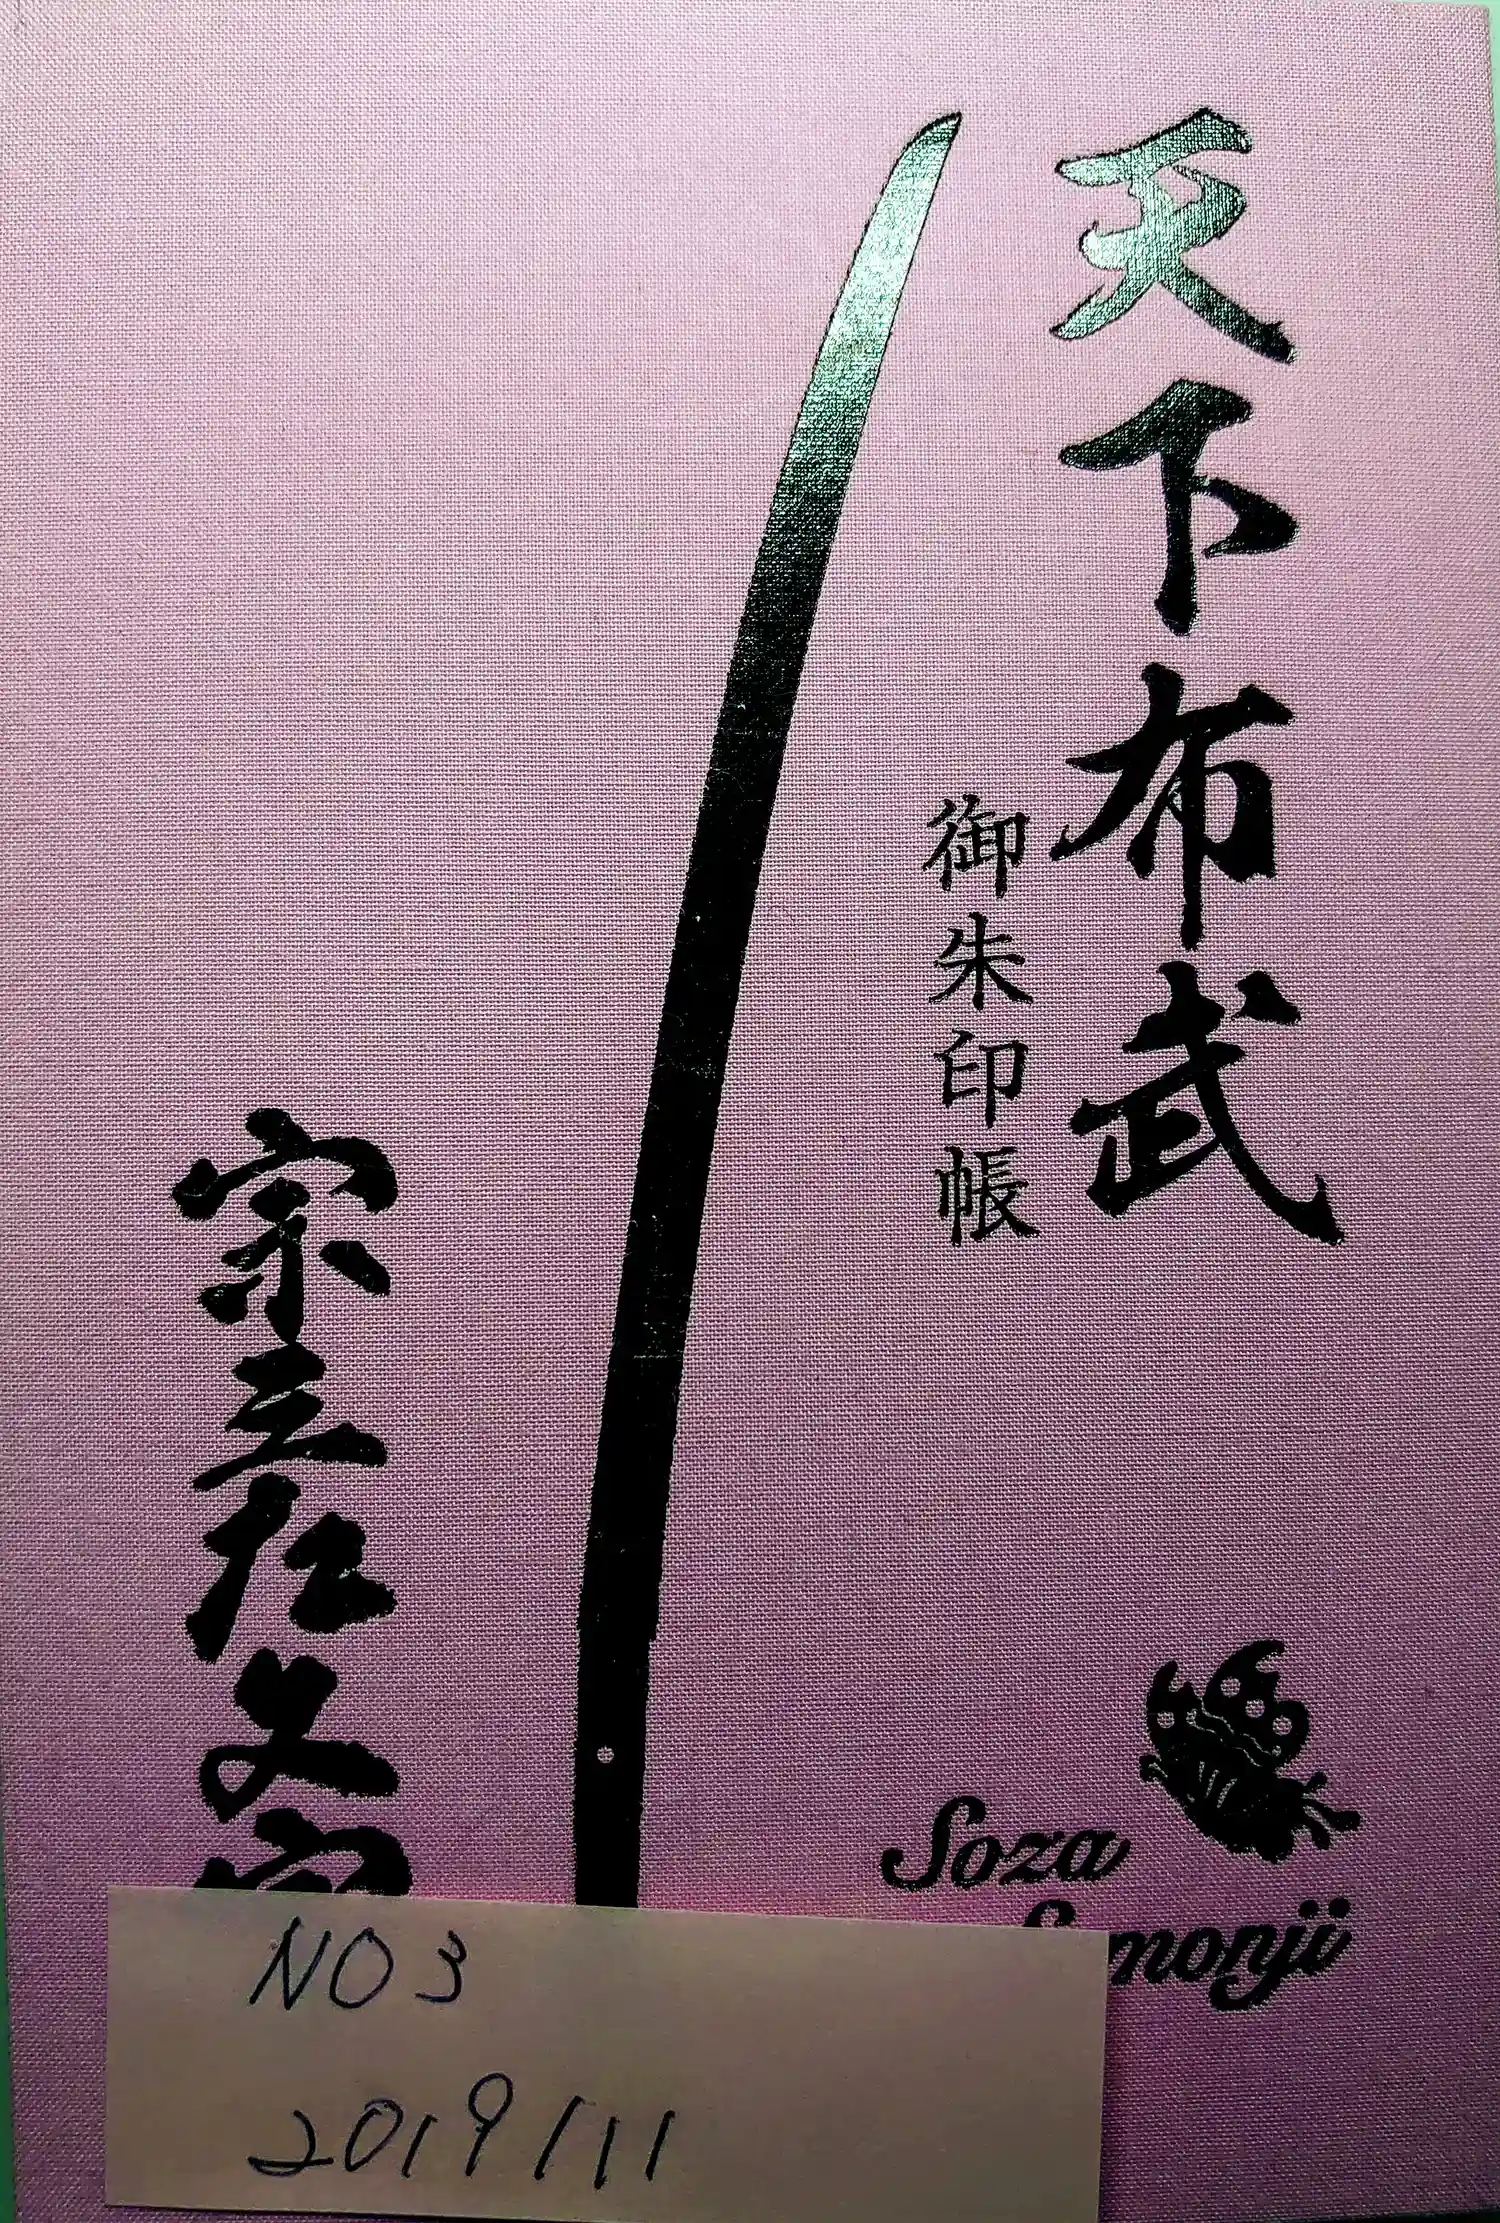 天下布武
御朱印帳
宗三左文字
Soza
Samonji
NO3
2019/11